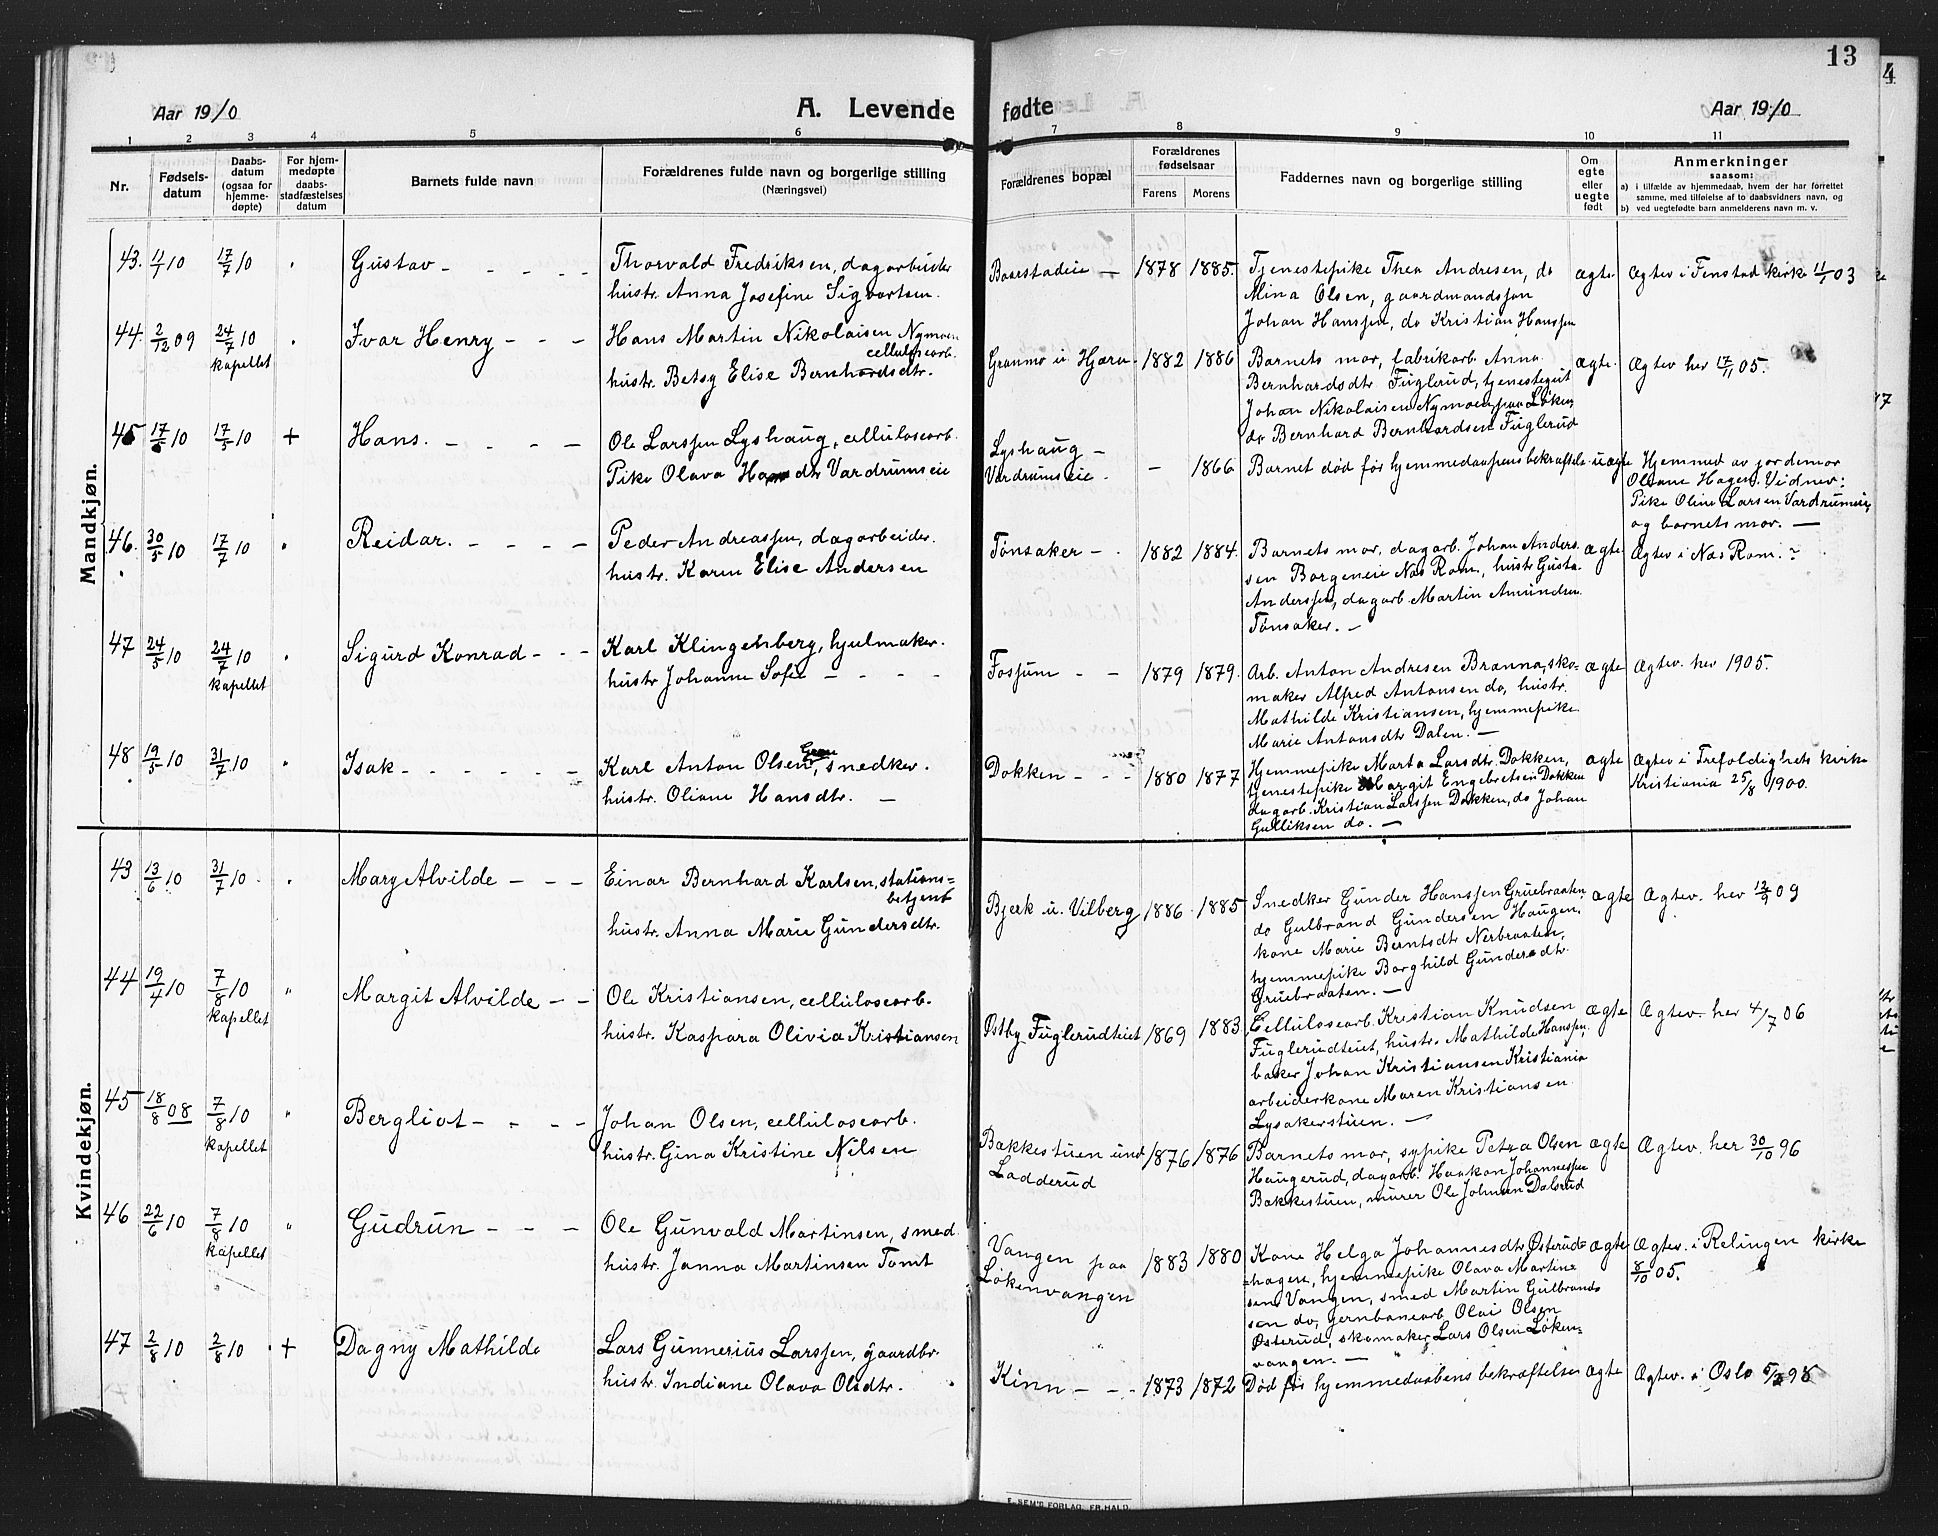 13
4
Aar 1910
A. Levende fødte
Aar 1910
1 2 3 4 5 6 7 8 9 10 11
Nr.
Fødsels-datum
Daabs-datum (ogsaa for hjemme-døpte)
For hjem-medøpte daabs-stadfæstelses datum
Barnets fulde navn
Forældrenes fulde navn og borgerlige stilling
(Næringsvei)
Forældrenes bopæl
Forældrenes fødselsaar
Farens Morens
Faddernes navn og borgerlige stilling
Om egte eller uegte født
Anmerkninger
saasom:
a) i tilfælde av hjemmedaab, hvem der har forrettet
samme, med tilføielse af to daabsvidners navn, og
b) ved uegtefødte barn anmelderens navn m. v.
Mandkjøn.
43. 11/7 10 17/7 10 Gustav - - - - -
Thorvald Fredriksen, dagarbeider
hustr. Anna Josefine Sigvartsen.
1878 1885.
Tjenestepike Thea Andresen, do
Mina Olsen, gaardmandssøn
Johan Hanssen, do Kristian Hanssen
ægte. Ægtev i Fenstad kirke 11/1 03
44. 2/12 09 24/7 10 kapellet
Ivar Henry - - -
Hans Martin Nikolaisen Nymoen
cellulosearb.
hustr. Betsy Elise Bernhardsdtr.
Granmo u Hæra 1882 1886
Barnets mor, fabrikarb Anna
Bernhardsdtr Fuglerud, tjenestegut
Johan Nikolaisen Nymoen paa Løken,
do Bernhard Bernhardsen Fuglerud
ægte. Ægtev her 17/11 05.
45 17/5 10 17/5 10 + Hans. - - - -
Ole Larssen Lyshaug, cellulosearb.
Pike Olava Hansdtr Vardrumseie
Lyshaug -
Vardrumseie.
- 1866
Barnet død før hjemmedaapens bekræftelse uægte
Hjemmed av jordemor
Oliane Hagen. Vidner:
Pike Oline Larsen Vardrumseie
og barnets mor. -
46. 30/5 10 17/7 10 Reidar. - - - -
Peder Andreassen, dagarbeider.
hustr. Karen Elise Andersen
Tønsaker - 1882 1884.
Barnets mor, dagarb. Johan Anders
sen Borgeneie Næs Rom., hustr Gusta
Anderssen, dagarb. Martin Amundsen
Tønsaker. -
ægte Ægtev i Næs Rom. ~
47 24/5 10 24/7 10 kapellet
Sigurd Konrad - - -
Karl Klingenberg, hjulmaker.
hustr Johanne Sofie - - - -
Fossum - - 1879 1879.
Arb. Anton Andresen Branna, sko-
maker Alfred Antonsen do, hustr.
Mathilde Kristiansen, hjemmepike
Marie Antonsdtr Dalen. -
ægte Ægtev. her 1905.
48 19/5 10 31/7 10 Isak - - - - - -
Karl Anton Olsen, snedker.
hustr. Oliane Hansdtr. -
Dokken - - - 1880 1877
Hjemmepike Marta Larsdtr. Dokken,
tjenestepike Margit Engebretsen Dokken
dagarb. Kristian Larssen Dokken, do Johan
Gulliksen do. -
ægte Ægtev i Trefoldighets kirke
Kristiania 25/8 1900.
Kvindekjøn.
43 13/6 10 31/7 10 Mary Alvilde - - -
Einar Bernhard Karlsen, stations=
betjent
hustr. Anna Marie Gundersdtr.
Bjerk u. Vilberg 1886. 1885
Snedker Gunder Hanssen Gruebraaten
do Gulbrand Gundersen Haugen,
kone Marie Berntsdtr Nerbraaten,
hjemmepike Borghild Gundersdtr
Gruebraaten. -
ægte Ægtev. her 12/9 09
44 19/4 10 7/8 10 kapellet
Margit Alvilde - -
Ole Kristiansen, cellulosearb.
hustr. Kaspara Olivia Kristiansen
Østby Fuglerudteiet 1869 1883
Cellulosearb. Kristian Knudsen
Fuglerudteiet, hustr. Mathilde Hanssen,
baker Johan Kristiansen Kristiania
arbeiderkone Maren Kristiansen
Lysakerstuen. -
ægte Ægtev. her 4/7 06
45 18/8 08 7/8 10 kapellet
Bergliot - - - -
Johan Olsen, cellulosearb.
hustr. Gina Kristine Nilsen
Bakkestuen und
Ladderud
1876 1876
Barnets mor, sypike Petra Olsen
Haugerud, dagarb. Haakon Johannessen
Bakkestuen, murer Ole Johnsen Dalsrud
ægte Ægtev. her 30/10 96
46 22/6 10 7/8 10 kapellet
Gudrun - - -
Ole Gunvald Martinsen, smed
hustr. Janna Martinsen Tomt
Vangen paa
Løkenvangen
1883 1880
Kone Helga Johannesdtr Østerud=
hagen, hjemmepike Olava Martin=
sen Vangen, smed Martin Gulbrand=
sen do, jernbanearb Olai Olsen
Østerud, skomaker Lars Olsen Løken=
vangen. -
ægte Ægtev. i Relingen kirke
8/10 05.
47 2/8 10 2/8 10 + Dagny Mathilde
Lars Gunnerius Larssen, gaardbr.
hustr. Indiane Olava Olsdtr.
Kinn - - - 1873 1872
Død før hjemmedaabens bekræftelse ægte Ægtev. i Oslo
E. SEM'S FORLAG, FR.HALD.